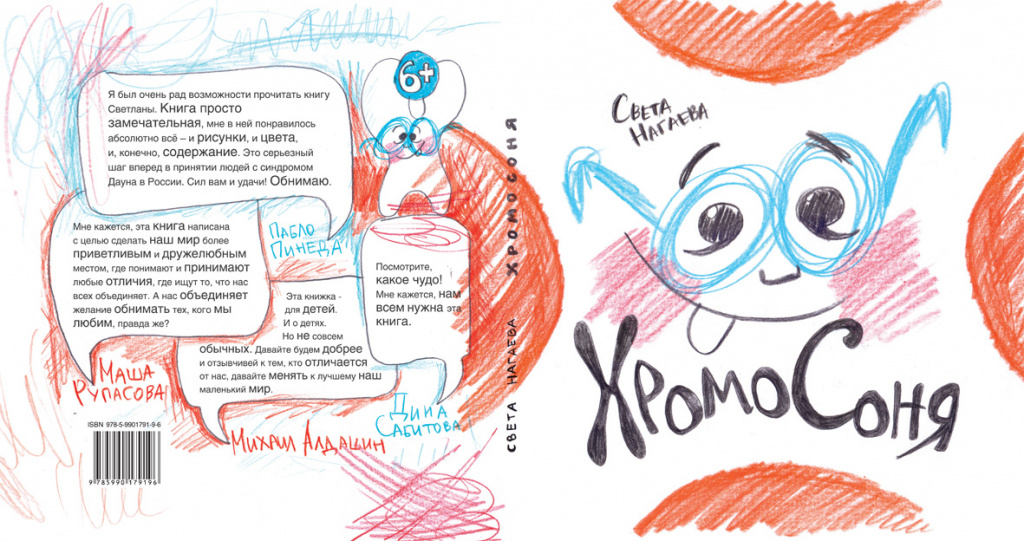 6+
Я был очень рад возможности прочитать книгу
Светланы. Книга просто
замечательная, мне в ней понравилось
абсолютно всё – и рисунки, и цвета,
и, конечно, содержание. Это серьезный
шаг вперед в принятии людей с синдромом
Дауна в России. Сил вам и удачи! Обнимаю.
Пабло
Пинеда
Мне кажется, эта книга написана
с целью сделать наш мир более
приветливым и дружелюбным
местом, где понимают и принимают
любые отличия, где ищут то, что нас
всех объединяет. А нас объединяет
желание обнимать тех, кого мы
любим, правда же?
Маша
Рупасова
Эта книжка -
для детей.
И о детях.
Но не совсем
обычных. Давайте будем добрее
и отзывчивей к тем, кто отличается
от нас, давайте менять к лучшему наш
маленький мир.
Михаил Алдашин
Посмотрите,
какое чудо!
Мне кажется, нам
всем нужна эта
книга.
Дина
Сабитова
ISBN 978-5-9901791-9-6
9 785990 179196
СВЕТА НАГАЕВА ХРОМОСОНЯ
Света
Нагаева
ХромоСоня